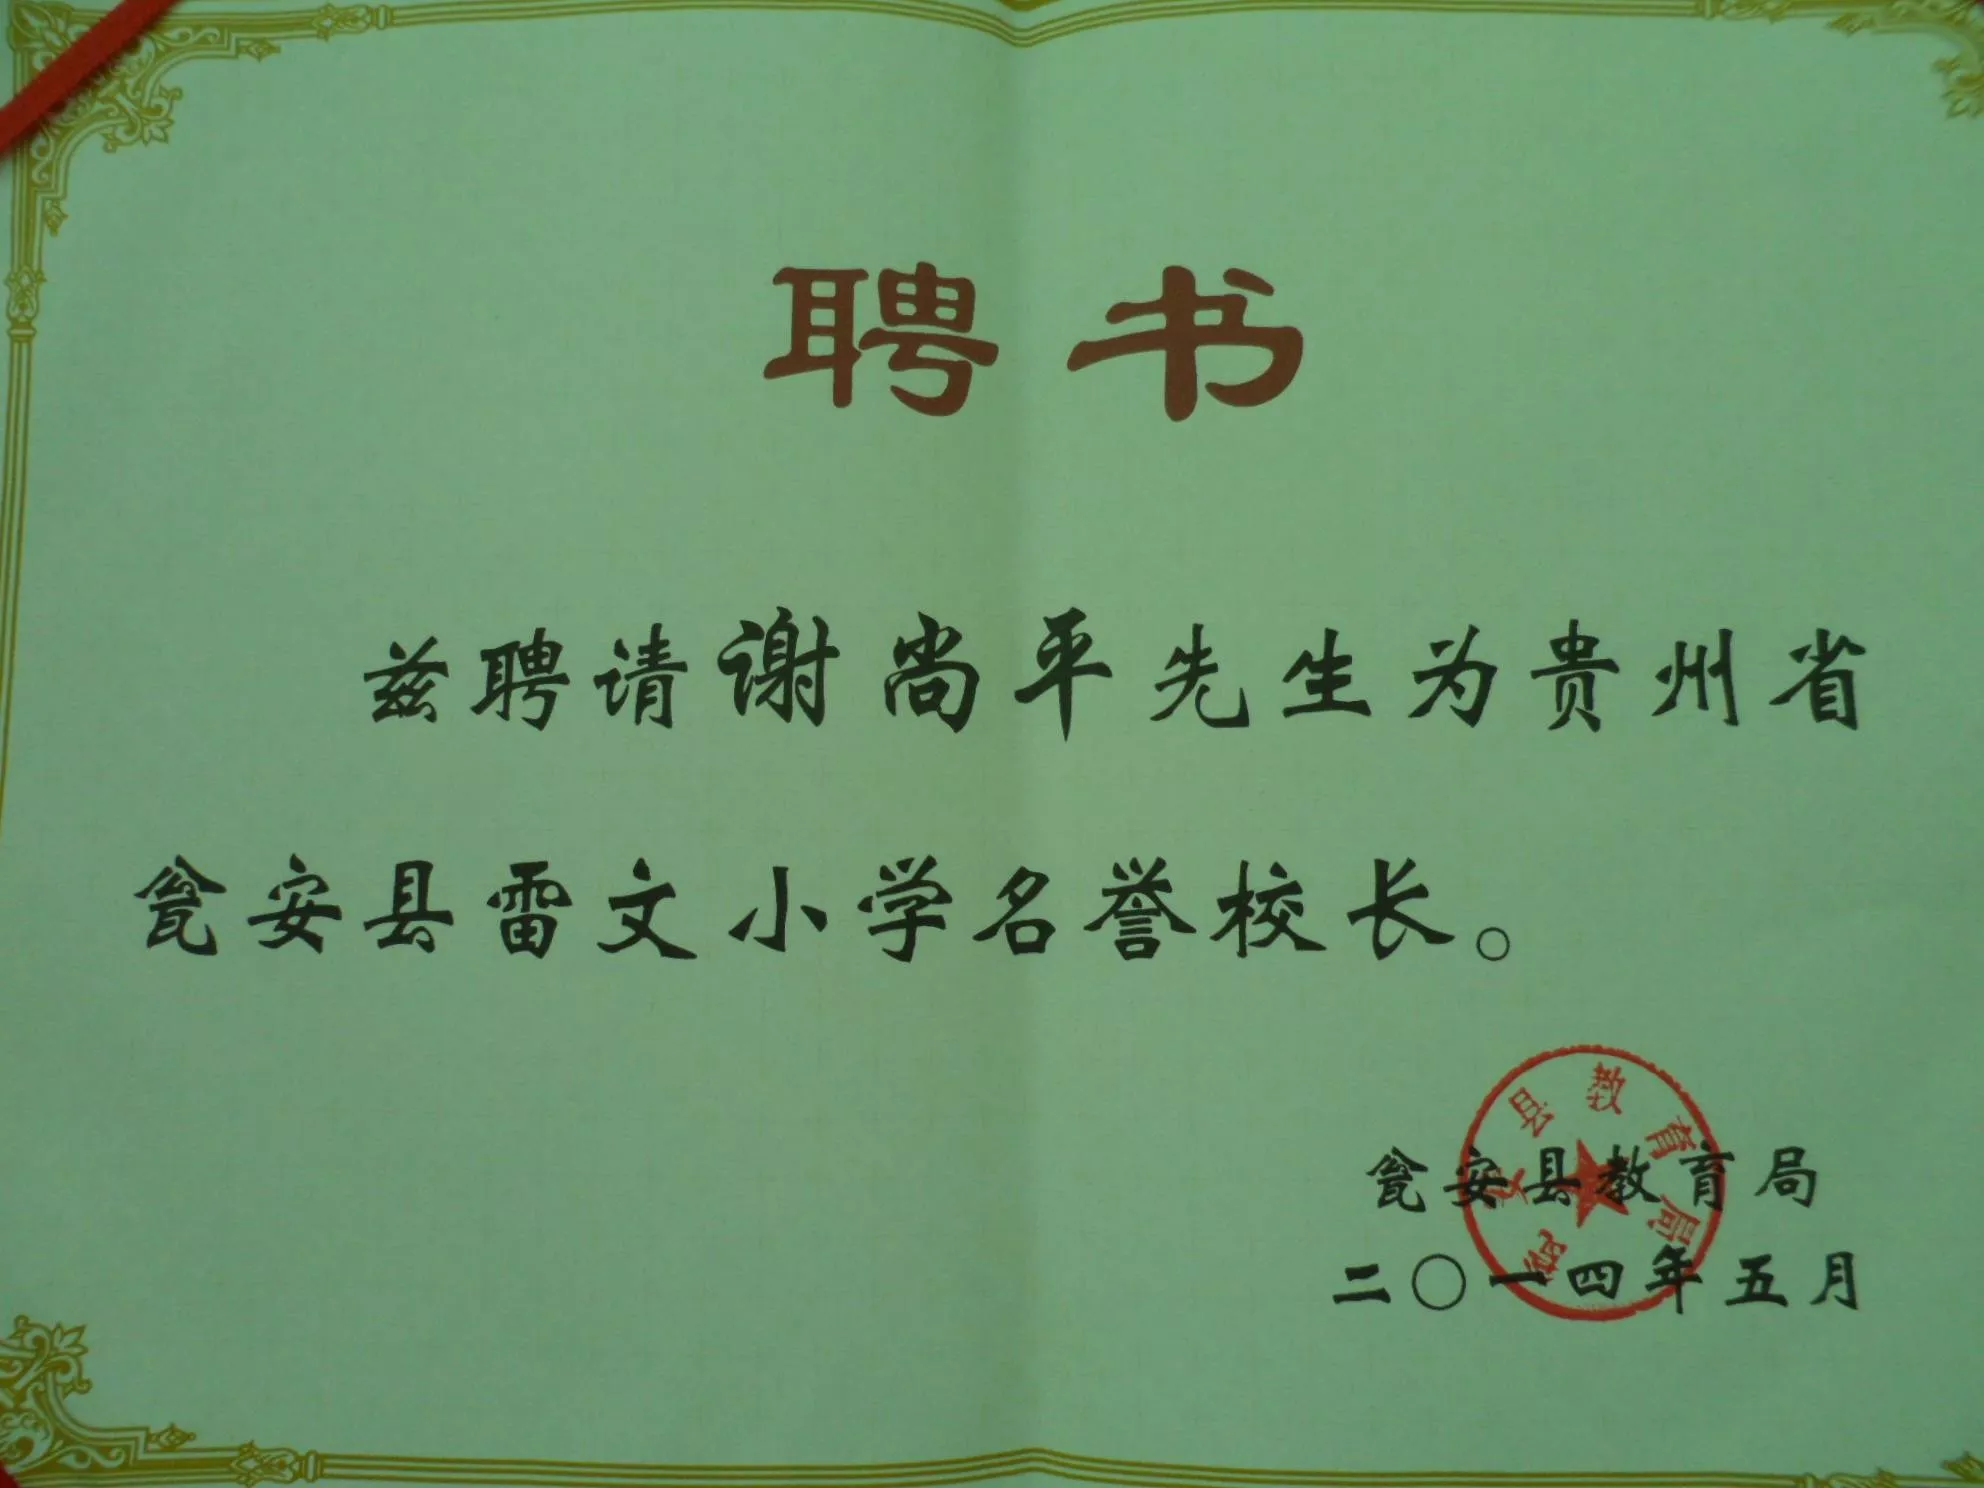 聘书
兹聘请谢尚平先生为贵州省
瓮安县雷文小学名誉校长。
瓮安县教育局
二〇一四年五月
瓮安县教育局